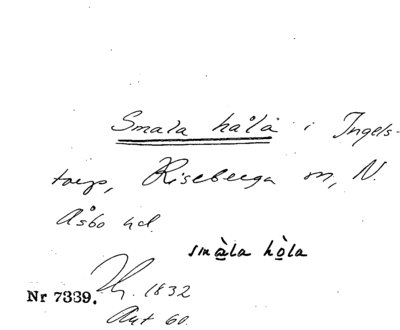 Smala håla i Ingels-
torp, Riseberga sn, N.
Åsbo hd.
smàla hòla
Nr 7339.
1832
Ant 60.